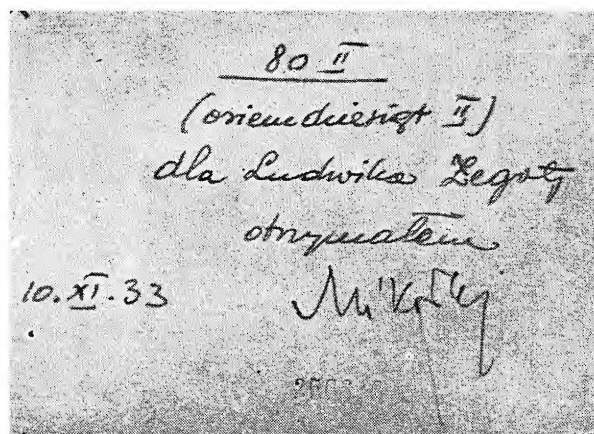 80 II
(osiemdziesiąt II)
dla Ludwika Żegoty
otrzymałem
10.XI.33